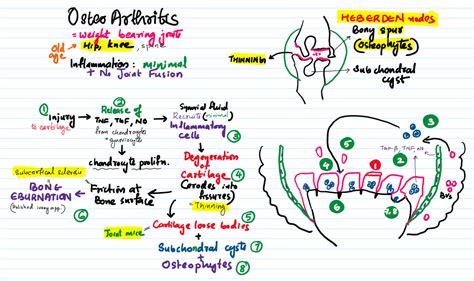 Osteo Arthrites
= weight bearing joints
Old age → Hip, knee, spine
Inflammation: minimal
+ No Joint Fusion
HEBERDEN nodes
Bony spur
(Osteophytes)
THINNING
Subchondral
cyst
① Injury
to cartilage
② Release of
TNF, TGF, NO
from chondrocytes
+ synoviocytes
chondrocyte prolifn.
Synovial fluid
Recruits (minimal)
Inflammatory
cells
③
Degeneration
of
Cartilage ④
(erodes into
fissures)
Thinning
Friction at
Bone surface
Subcortical sclerosis
BONE
EBURNATION
(Polished ivory app)
⑥
⑤
Joint mice
Cartilage loose bodies
+
Subchondral cysts ⑦
+
Osteophytes ⑧
③
TGF-β, TNF, NO
②
⑤
④
①
⑥
7,8
BVs